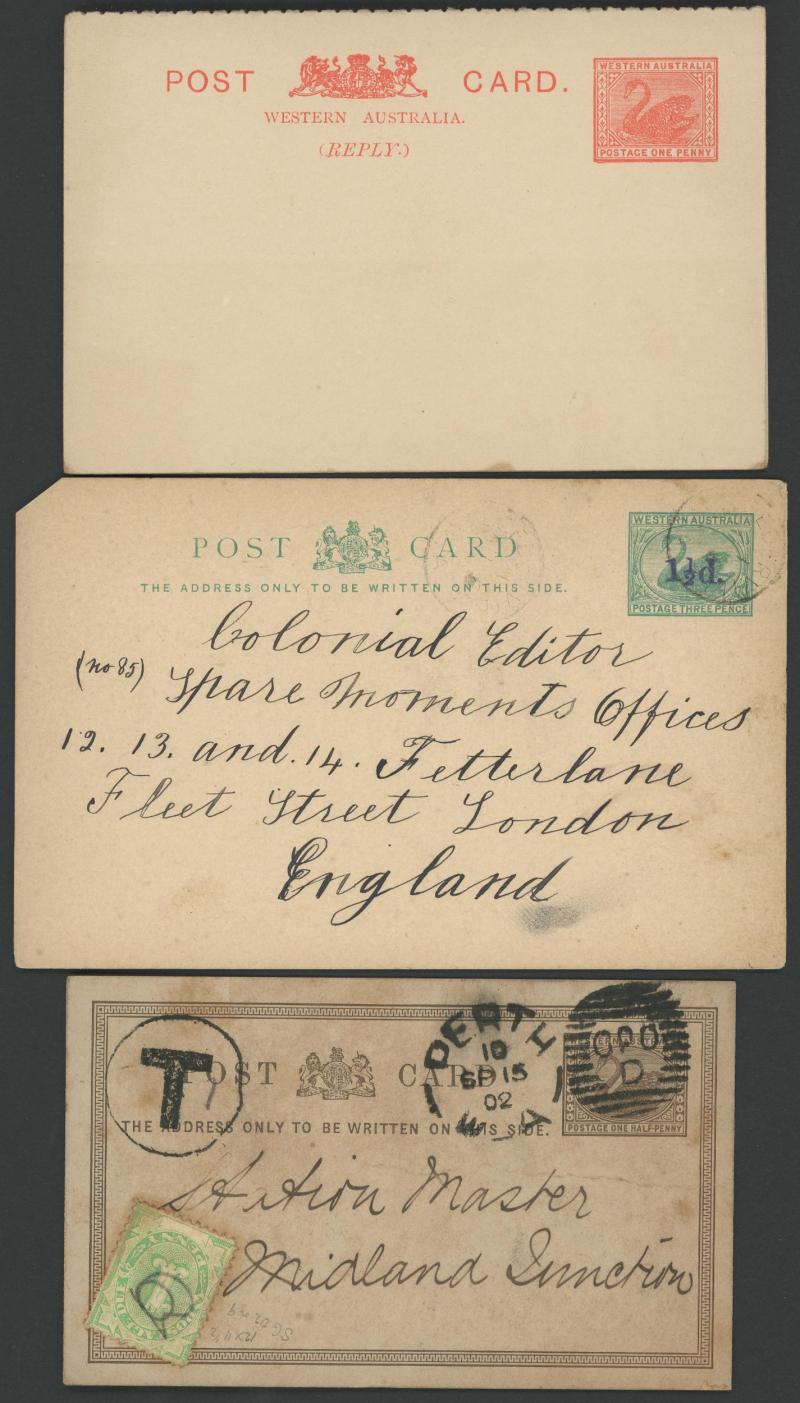 POST CARD.
WESTERN AUSTRALIA.
(REPLY.)
WESTERN AUSTRALIA
POSTAGE ONE PENNY
POST CARD
THE ADDRESS ONLY TO BE WRITTEN ON THIS SIDE.
WESTERN AUSTRALIA
1½d.
POSTAGE THREE PENCE
Colonial Editor
(no 85) Spare Moments Offices
12. 13. and. 14. Fetterlane
Fleet Street London
England
T
POST CARD
THE ADDRESS ONLY TO BE WRITTEN ON THIS SIDE.
PERTH
10
SP 15
02
W A
D
POSTAGE ONE HALF-PENNY
Station Master
Midland Junction
POSTAGE DUE
ONE PENNY